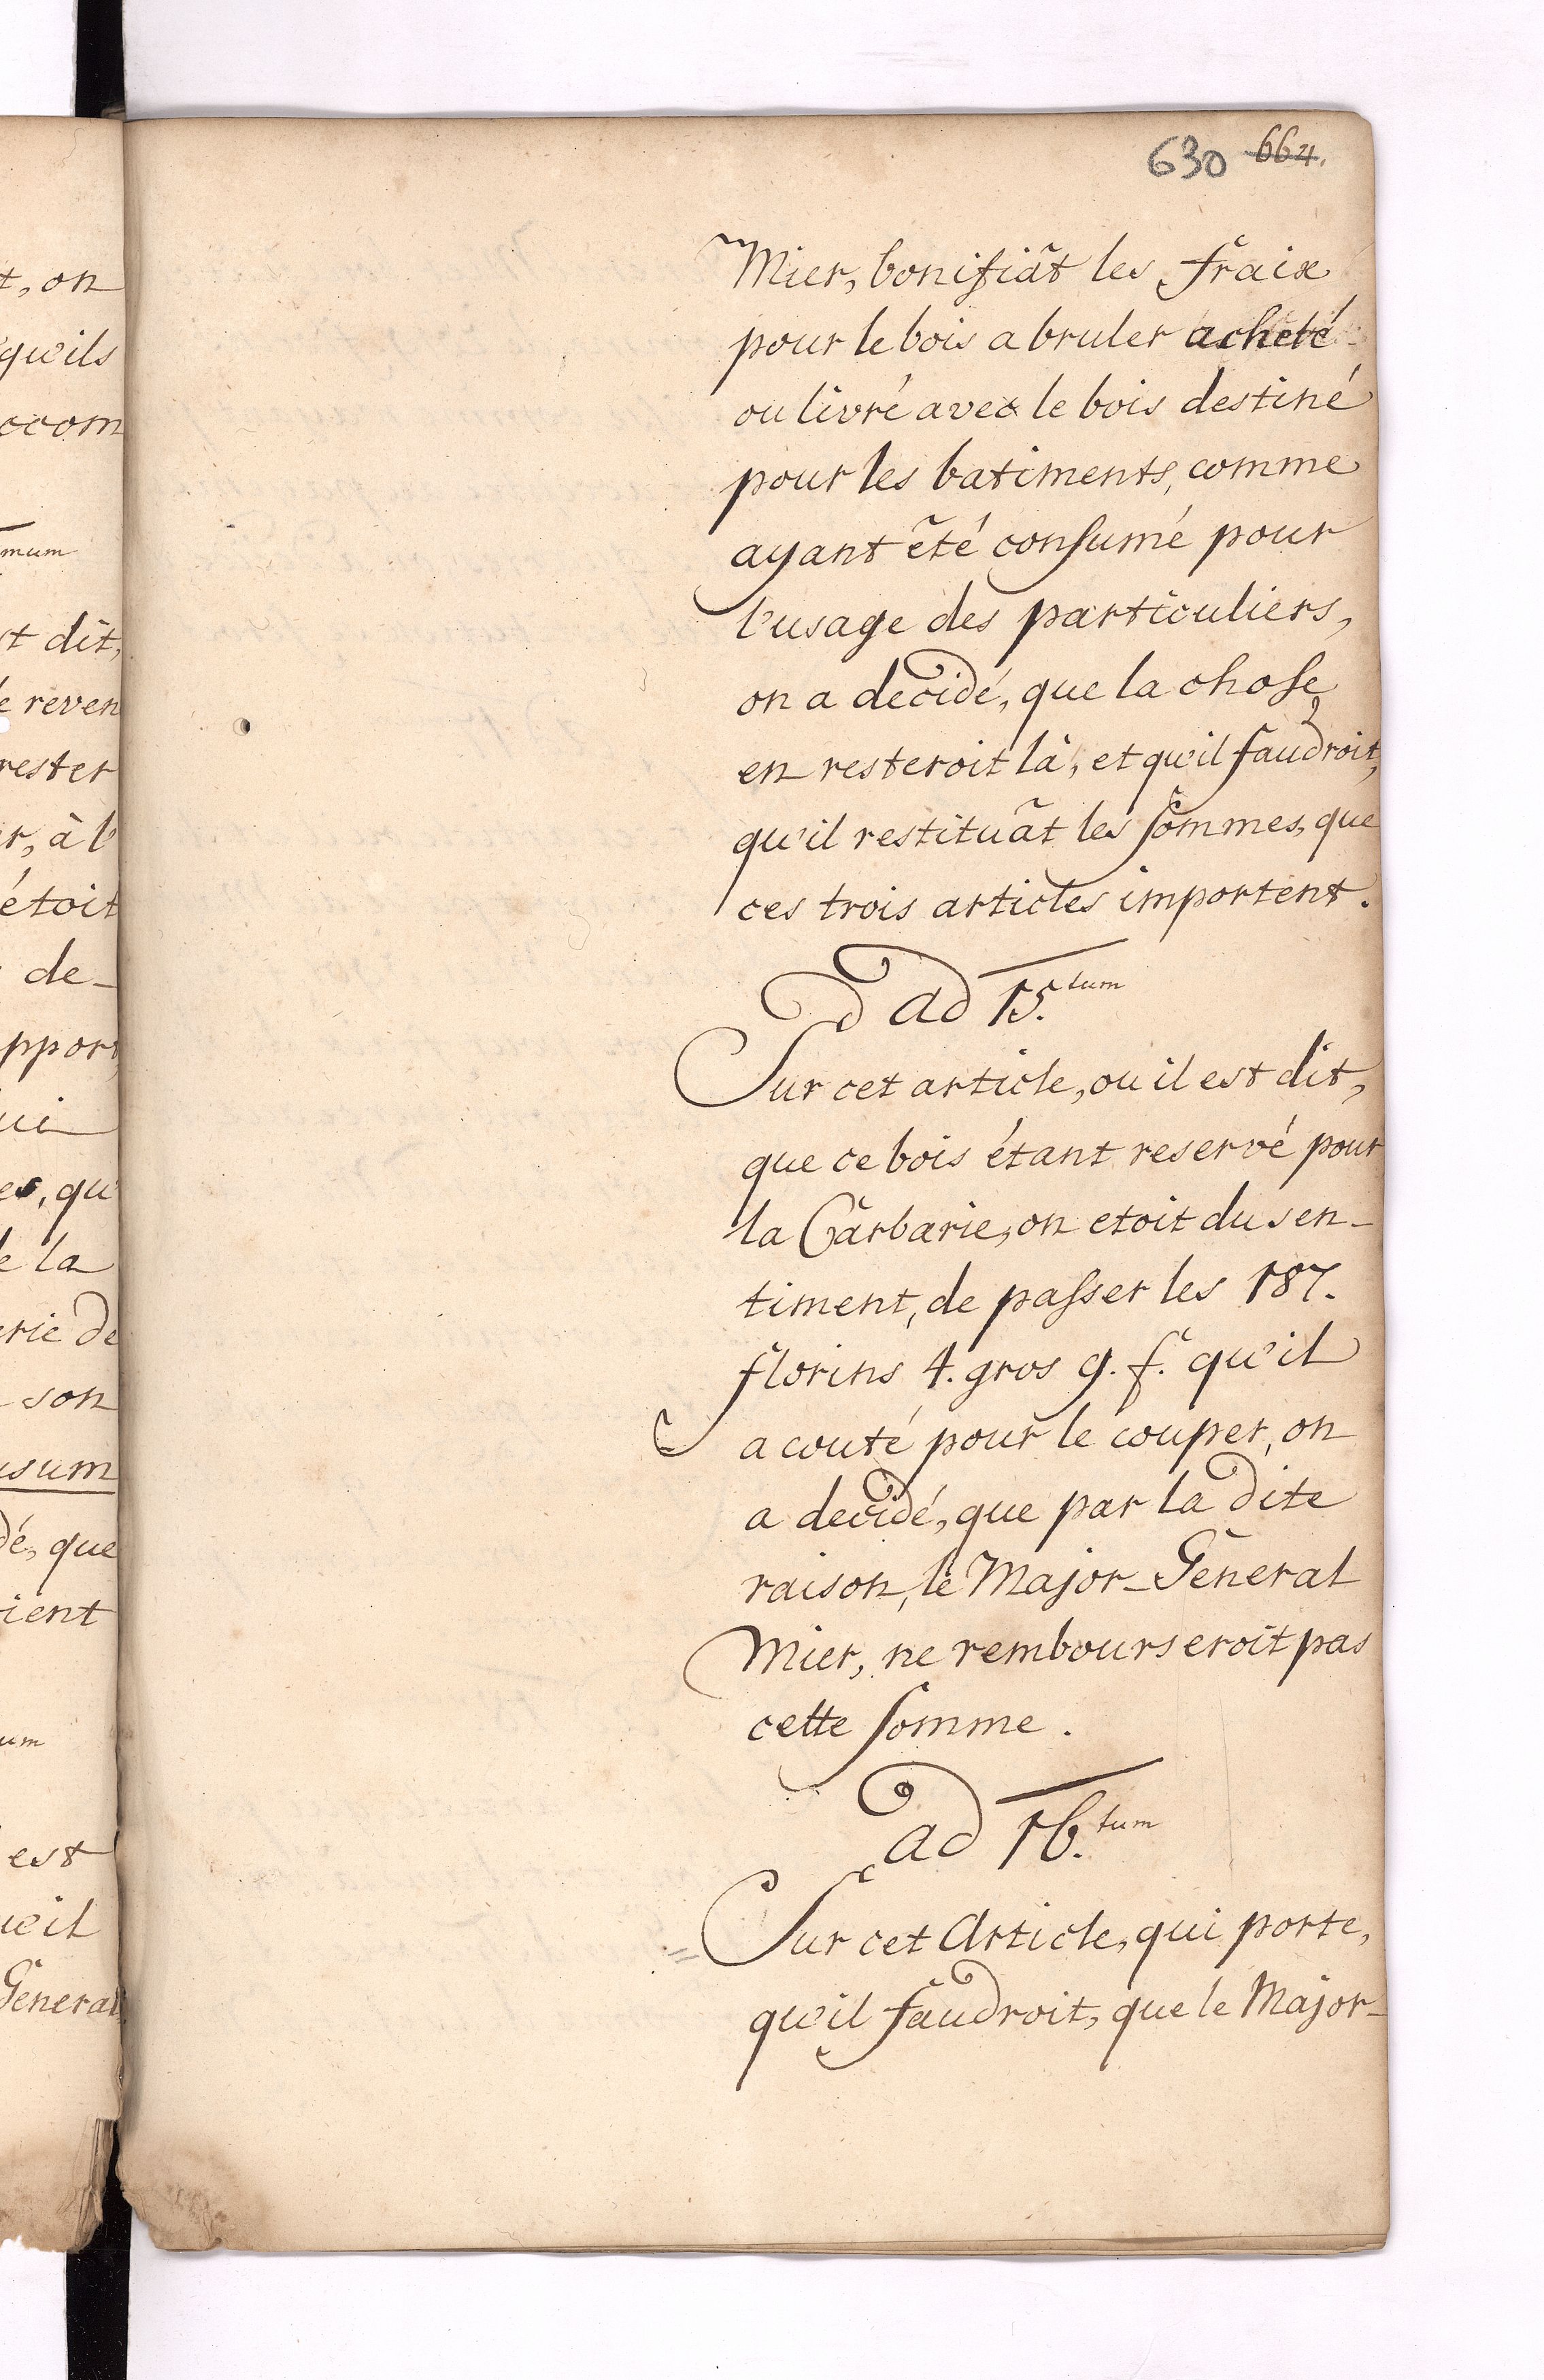 630 664.
t, on
qu'ils
ccom
mum
st dit,
le reven
rester
r, à l'
étoit
de-
pport
ui
es, qu'
e la
erie de
son
usum
dé, que
ient
um
est
u'il
Géneral
Mier, bonifiât les fraix
pour le bois a bruler acheté
ou livré avec le bois destiné
pour les batiments, comme
ayant êté consumé pour
l'usage des particuliers,
on a decidé, que la chose
en resteroit là, et qu'il faudroit,
qu'il restituât les sommes, que
ces trois articles importent.
ad 15.tum
Sur cet article, ou il est dit,
que ce bois étant reservé pour
la Carbarie, on etoit du sen-
timent, de passer les 187.
florins 4. gros 9. f. qu'il
a couté pour le couper, on
a decidé, que par la dite
raison, le Major-Géneral
Mier, ne rembourseroit pas
cette somme.
ad 16.tum
Sur cet Article, qui porte,
qu'il faudroit, que le Major-